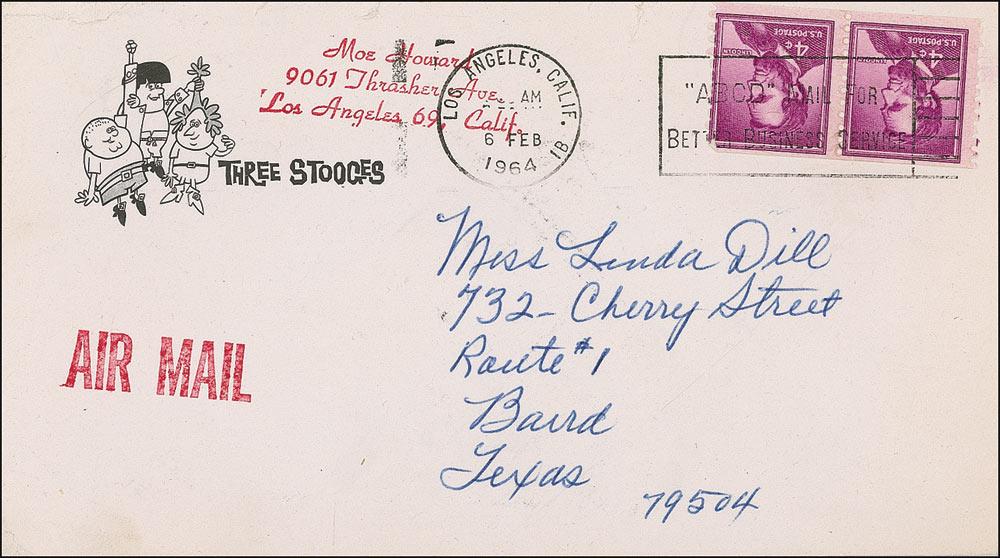 Moe Howard
9061 Thrasher Ave.
Los Angeles 69, Calif.
THREE STOOGES
LOS ANGELES, CALIF. 1B
AM
6 FEB
1964
U.S. POSTAGE
4¢
LINCOLN
U.S. POSTAGE
4¢
LINCOLN
"ABCD" MAIL FOR
BETTER BUSINESS SERVICE
Miss Linda Dill
732 - Cherry Street
Route #1
Baird
Texas
79504
AIR MAIL